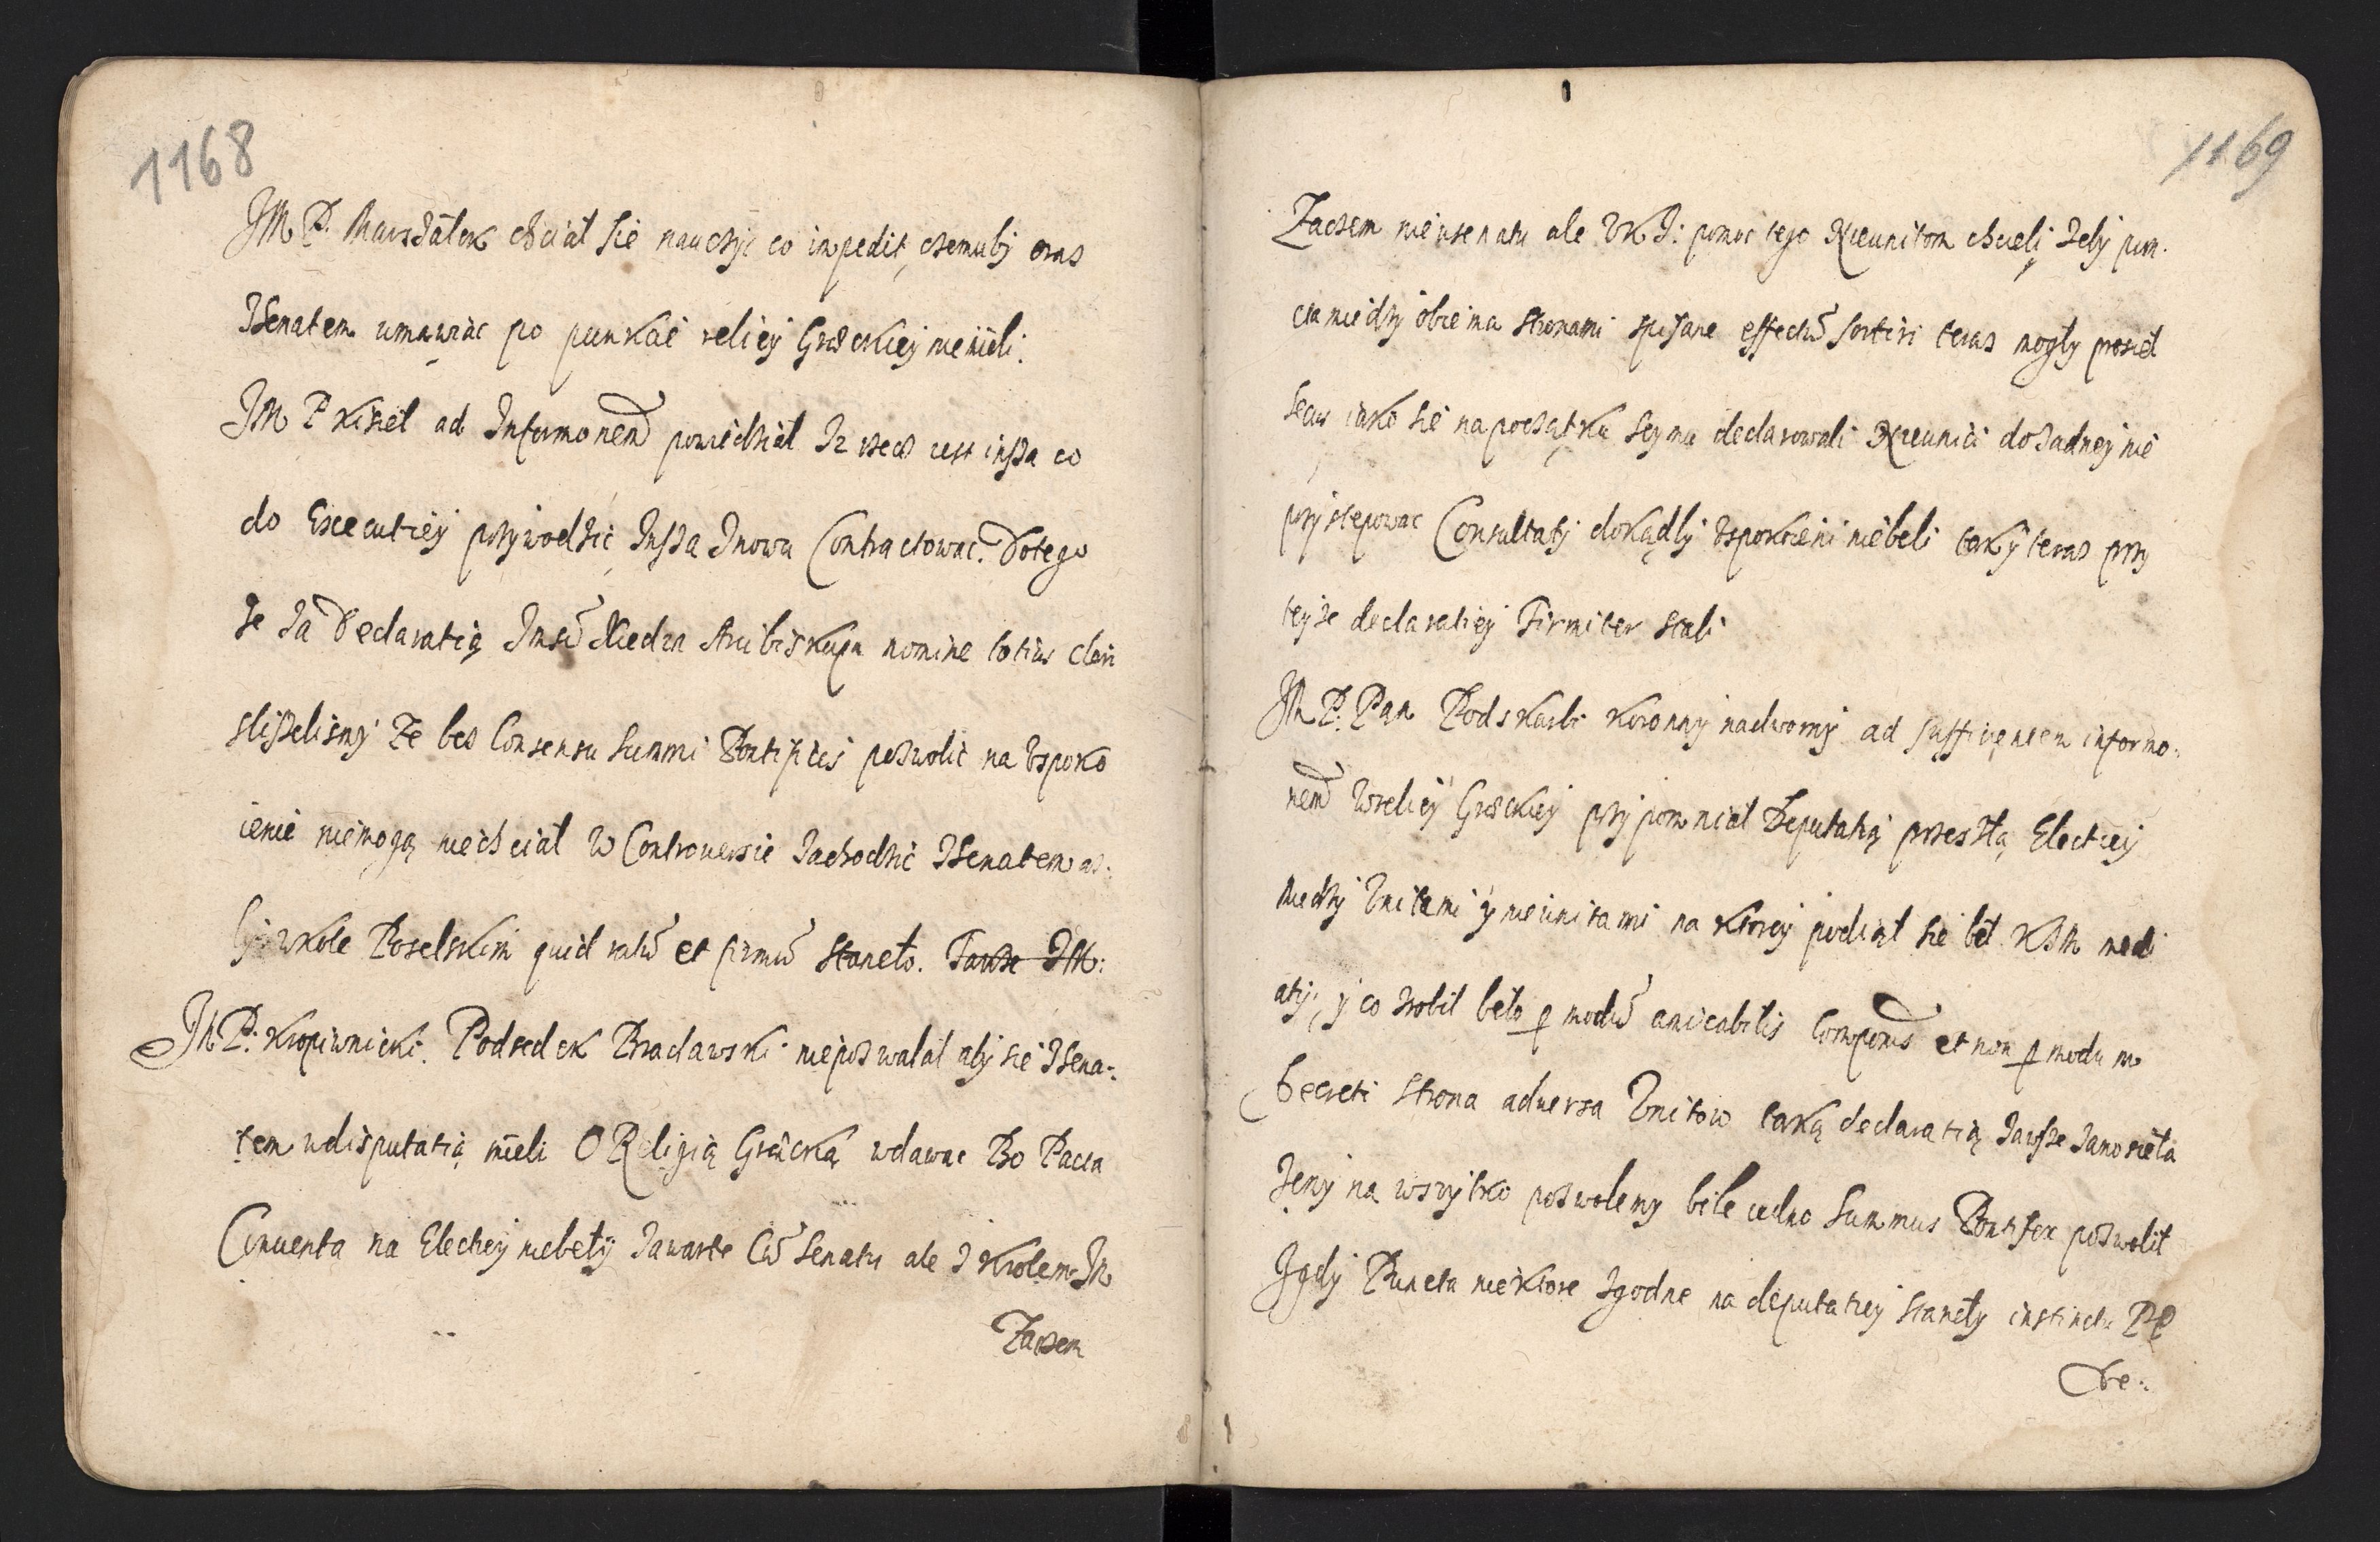 1168
JM P. Marszałek chciał sie nauczyc co impedit, czemuby oras
ZSenatem umawiac po punkcie religiey Greckiey nie mieli.
JM P Kisiel ad Informonem powiedział Iz rzecz iest insza co
do Executiey przywodzic, Insza Znowu Contractowac. Dotego
Ze Za Declaratią Imsci Xiedza Arcibiskupa nomine totius cleri
sliszelismy Ze bes Consensu Summi Pontificis pozwolic na Uspoko
ienie niemogą niechciał W Controuersie Zachodzic ZSenatem as.
W kole Poselskim quid ratū et firmū Staneło. Tawsze JM:
JM P. Kropiwnicki. Podsedek Braclawski niepozwalał aby sie ZSena-
tem w disputatią mieli O Religią Grecką wdawac Bo Pacta
Conuenta na Electiey niebeły Zawarte Cū Senatu ale Z Krolem JM
Zaczem
1169
Zaczem nie u senatu ale VKJ: pomoc tego Nieunitom chcieli Zeby pun.
cta miedzy obiema Stronami spisane effectū sortiri teras mogły prosieł
secus iako sie na początku Seymu declarowali Nieunici do Zadney nie
przystepowac Consultaty dokądby Uspokoieni niebeli tak y teras przy
teyze declaratiey Firmiter stali
JM P. Pan Podskarbi Koronny nadworny ad sufficientem informo.
nem Wreliey Greckiey przypomniał Deputatią przeszłą Electiey
Miedzy Unitami y nieunitami na ktorey podiął sie beł KJM medi
atij, y co zrobił beło p modū amicabilis Componis et non p modum
Decreti Strona aduersa Unitow taką declaratią Zawsze Zanosieła
Zeny na wszytko pozwolemy bile iedno Summus Pontifex pozwolił
Igdy Puncta niektore Zgodne na deputatiey staneły instinctu PP
De.